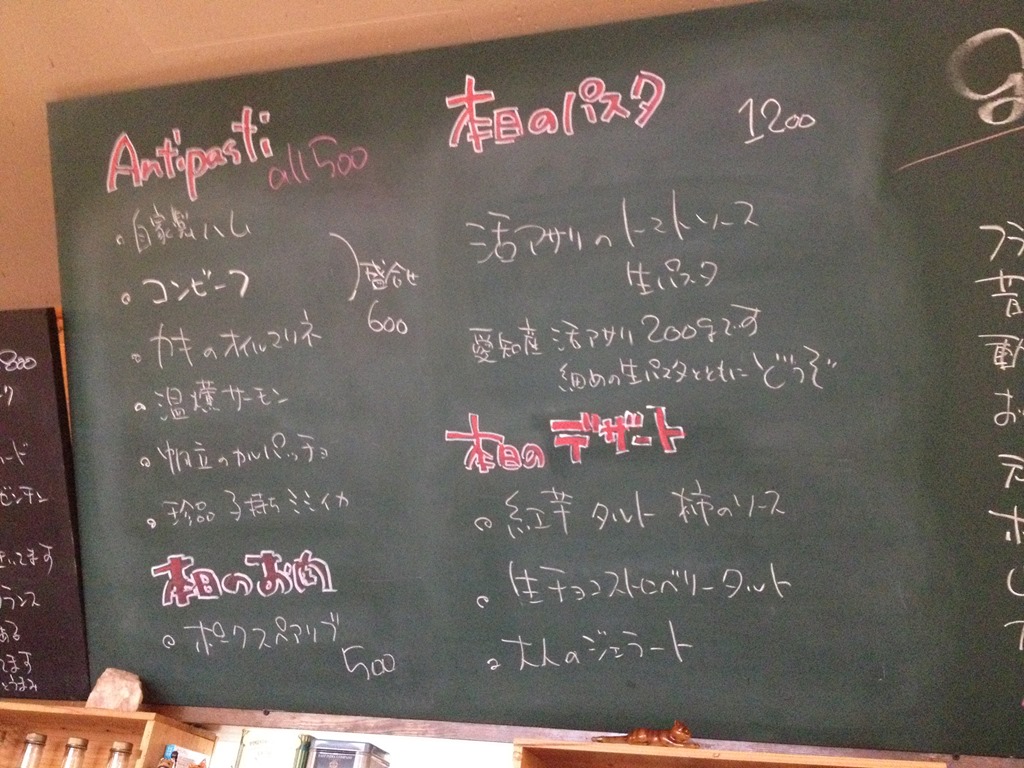 Antipasti all 500
。自家製ハム
。コンビーフ
盛合せ
600
。カキのオイルマリネ
。温燻サーモン
。帆立のカルパッチョ
。珍品 子持ちミミイカ
本日のお肉
。ポークスペアリブ
500
本日のパスタ 1200
活アサリのトマトソース
生パスタ
愛知産 活アサリ200gです
細めの生パスタとともにどうぞ
本日のデザート
。紅芋タルト 柿のソース
。生チョコストロベリータルト
。大人のジェラート
800